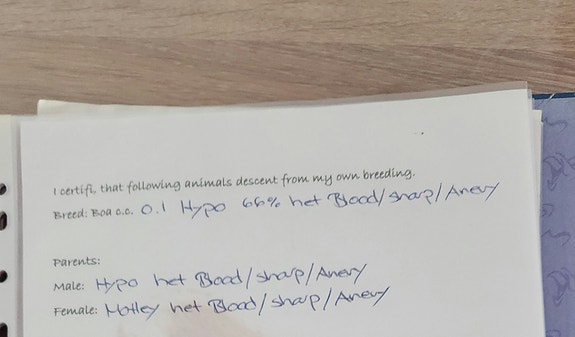 I certifi, that following animals descent from my own breeding.
Breed: Boa c.c. 0.1 Hypo 66% het Blood/sharp/Anery
Parents:
Male: Hypo het Blood/sharp/Anery
Female: Motley het Blood/sharp/Anery